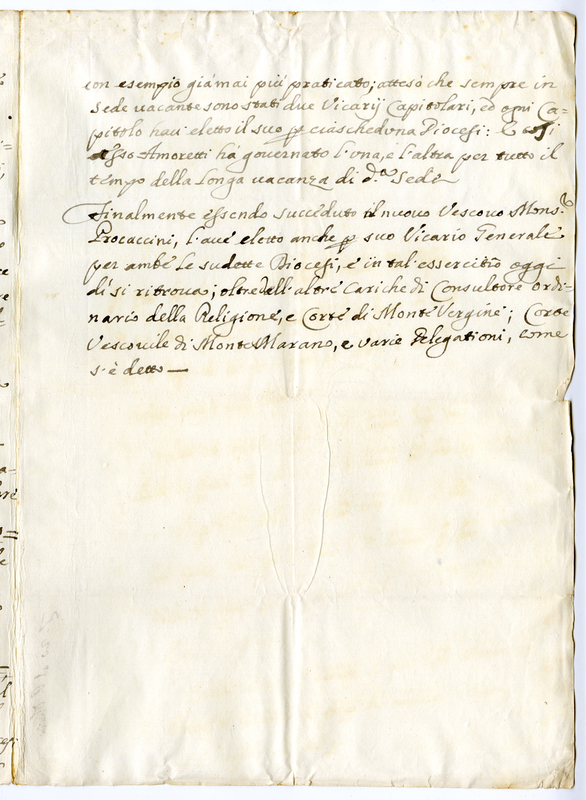 con esempio già mai più praticato; attesò che sempre in
Sede vacante sono stati due Vicarij Capitolari, ed ogni Ca-
pitolo havè eletto il suo p ciascheduna Diocesi: E così
esso Amoretti hà governato l'una, e l'altra per tutto il
tempo della longa vacanza di d.ª Sede
Finalmente essendo succeduto il nuovo Vescovo Mons.r
Procaccini, l'avè eletto anche p suo Vicario Generale
per ambe le sudette Diocesi, e in tal essercitio oggi
di si ritrova; oltre dell'altre Cariche di Consultore ordi-
nario della Religione, e Corte di Monte Vergine; Corte
Vescovile di Monte Marano, e varie Delegationi, come
s'è detto —